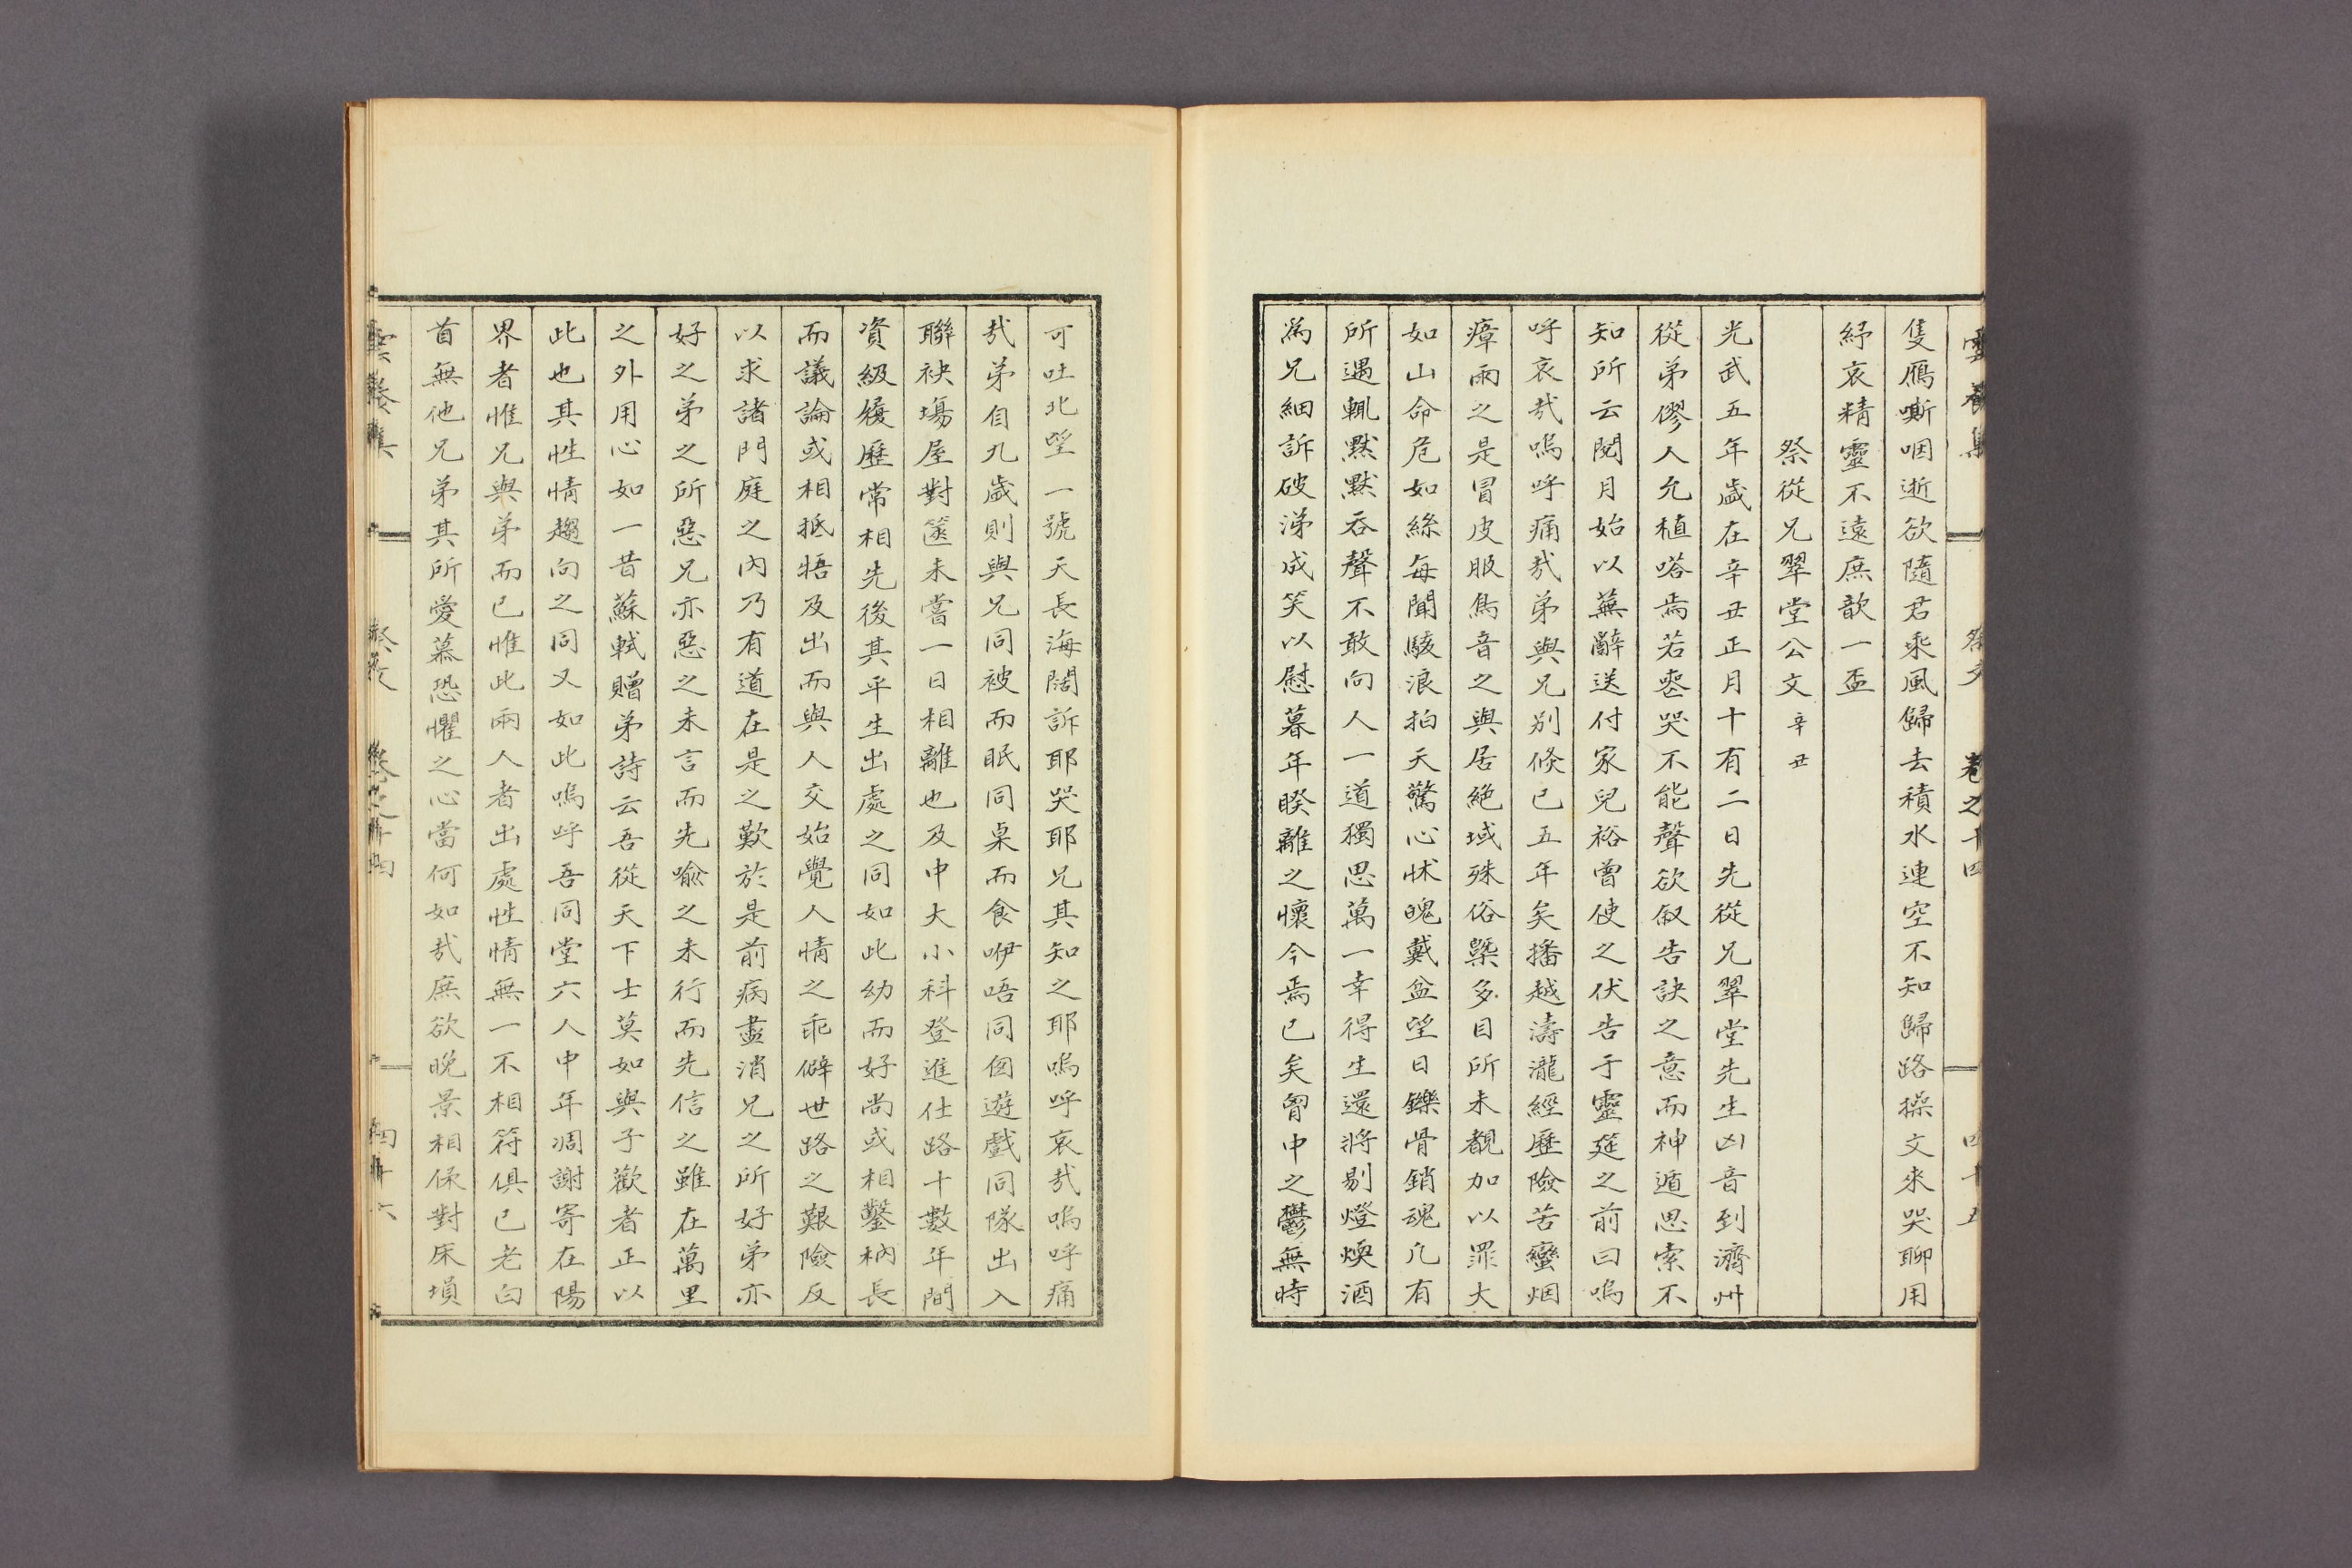 雲養集 祭文 卷之十四 四十五
隻鴈嘶咽逝欲隨君乘風歸去積水連空不知歸路操文來哭聊用
紓哀精靈不遠庶歆一盃
祭從兄翠堂公文 辛丑
光武五年歲在辛丑正月十有二日先從兄翠堂先生凶音到濟州
從弟僇人允植嗒焉若喪哭不能聲欲叙告訣之意而神遁思索不
知所云閱月始以蕪辭送付家兒裕曾使之伏告于靈筵之前曰嗚
呼哀哉嗚呼痛哉弟與兄別倏已五年矣播越濤瀧經歷險苦蠻烟
瘴雨之是冒皮服鳥音之與居絶域殊俗槩多目所未覩加以罪大
如山命危如絲每聞駭浪拍天驚心怵魄戴盆望日鑠骨銷魂凡有
所遇輒默默吞聲不敢向人一道獨思萬一幸得生還將剔燈煥酒
爲兄細訴破涕成笑以慰暮年睽離之懷今焉已矣胷中之鬱無時
可吐北望一號天長海闊訴耶哭耶兄其知之耶嗚呼哀哉嗚呼痛
哉弟自九歲則與兄同被而眠同桌而食咿唔同囱遊戲同隊出入
聯袂塲屋對篋未嘗一日相離也及中大小科登進仕路十數年間
資級履歷常相先後其平生出處之同如此幼而好尚或相鑿枘長
而議論或相抵牾及出而與人交始覺人情之乖僻世路之艱險反
以求諸門庭之内乃有道在是之歎於是前病盡消兄之所好弟亦
好之弟之所惡兄亦惡之未言而先喩之未行而先信之雖在萬里
之外用心如一昔蘇軾贈弟詩云吾從天下士莫如與子歡者正以
此也其性情趨向之同又如此嗚呼吾同堂六人中年凋謝寄在陽
界者惟兄與弟而已惟此兩人者出處性情無一不相符俱已老白
首無他兄弟其所愛慕恐懼之心當何如哉庶欲晚景相依對床塤
雲養集 祭文 卷之十四 四十六